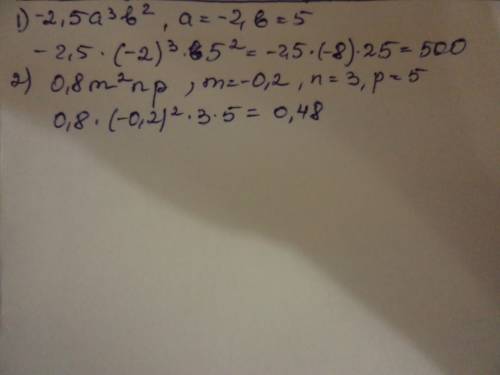 1) -2,5a³b², a=-2, b=5
-2,5·(-2)³·5²=-2,5·(-8)·25=500
2) 0,8m²np, m=-0,2, n=3, p=5
0,8·(-0,2)²·3·5=0,48